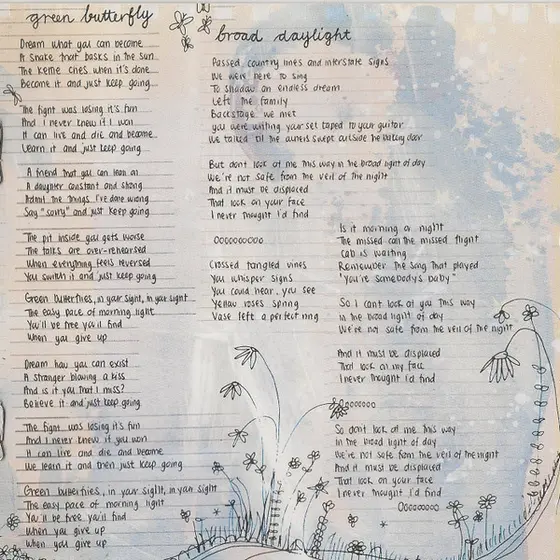 green butterfly
Dream what you can become
A snake that basks in the sun
The kettle cries when it's done
Become it and just keep going
The fight was losing it's fun
And I never knew if I won
It can live and die and become
Learn it and just keep going
A friend that you can lean on
A daughter constant and strong
Admit the things I've done wrong
Say "sorry" and just keep going
The pit inside you gets worse
The talks are over-rehearsed
When everything feels reversed
You switch it and just keep going
Green butterflies, in your sight, in your sight
The easy pace of morning light
You'll be free you'll find
When you give up
Dream how you can exist
A stranger blowing a kiss
And is it you that I miss?
Believe it and just keep going
The fight was losing it's fun
And I never knew if you won
It can live and die and become
We learn it and then just keep going
Green butterflies, in your sight, in your sight
The easy pace of morning light
You'll be free you'll find
When you give up
When you give up
broad daylight
Passed country lines and interstate signs
We were here to sing
To shadow an endless dream
Left the family
Backstage we met
you were writing your set taped to your guitar
We talked til the ushers swept outside the balcony door
But don't look at me this way in the broad light of day
We're not safe from the veil of the night
And it must be displaced
That look on your face
I never thought I'd find
Oooooooooo
Crossed tangled vines
You whisper signs
You could hear, you see
Yellow roses spring
Vase left a perfect ring
Is it morning or night
The missed call the missed flight
Cab is waiting
Remember the song that played
"You're somebody's baby"
So I can't look at you this way
In the broad light of day
We're not safe from the veil of the night
And it must be displaced
That look on my face
I never thought I'd find
Oooooooo
So don't look at me this way
In the broad light of day
We're not safe from the veil of the night
And it must be displaced
That look on your face
I never thought I'd find
Oooooooooo